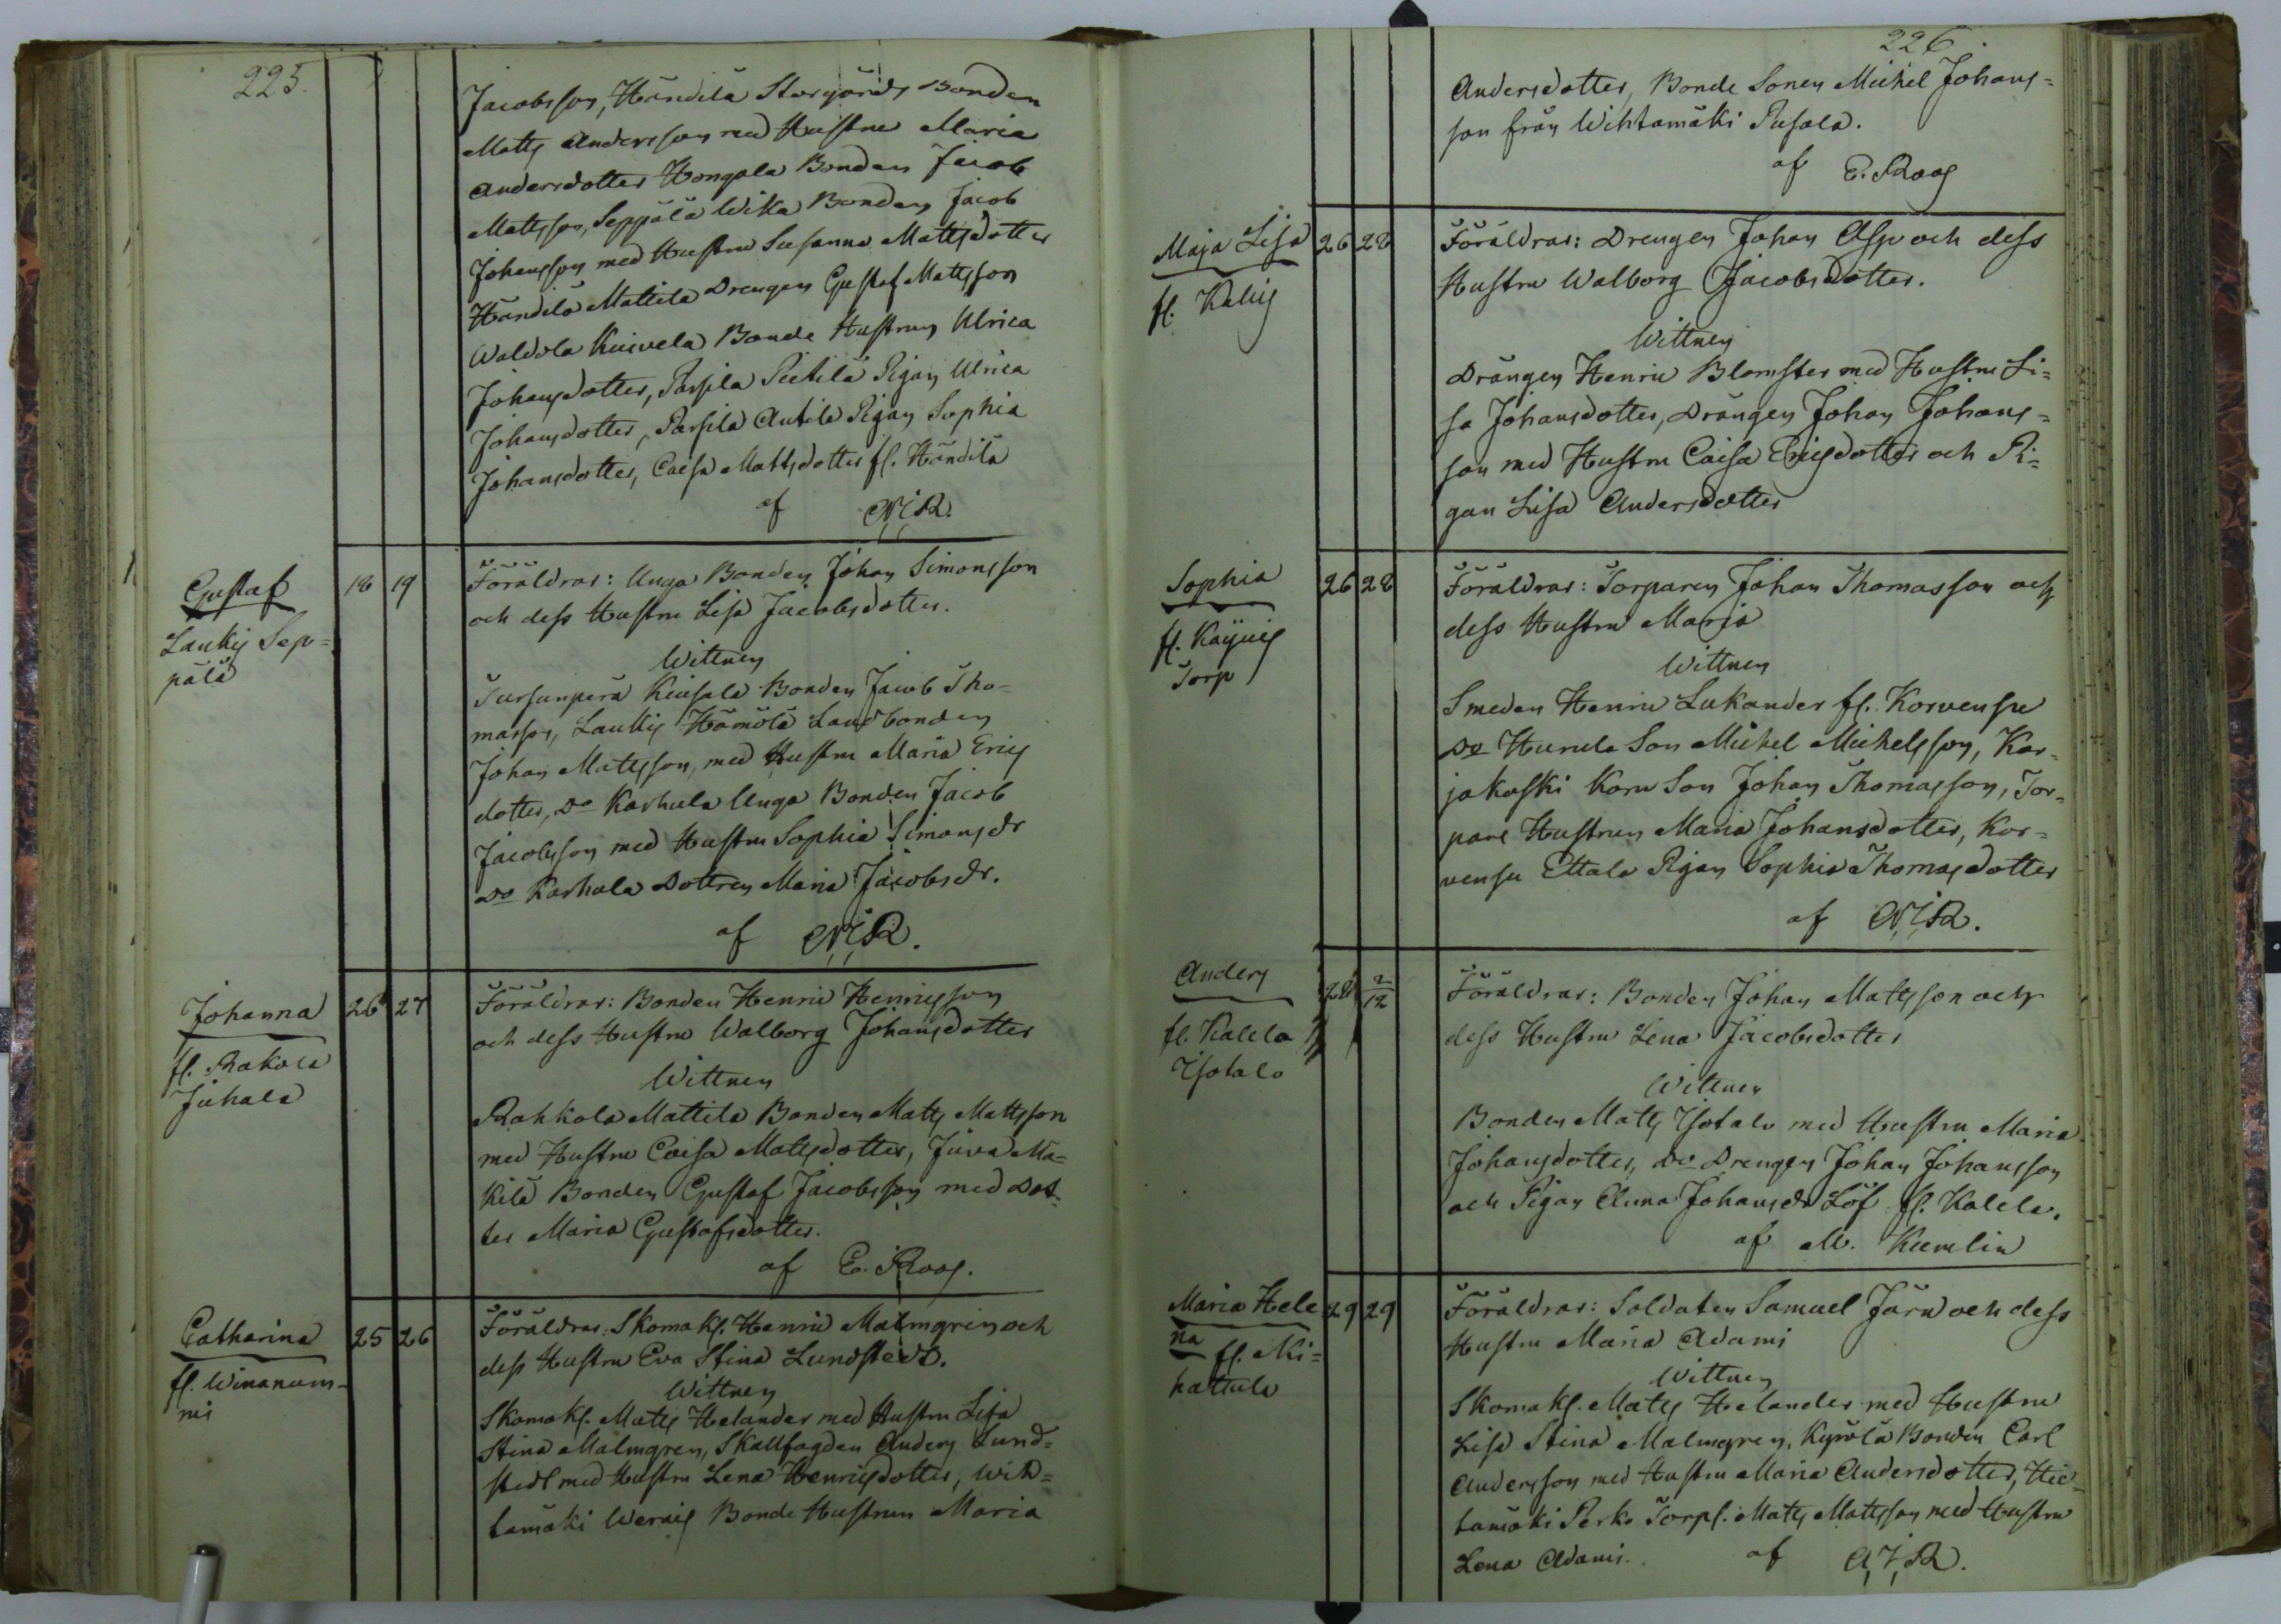 225.
Jacobsson, Händilä Storgårds Bonden
Matts Andersson med Hustru Maria
Andersdotter Hongola Bonden Jacob
Mattsson, Seppälä Wika Bonden Jacob
Johansson med Hustru Susanna Mattsdotter
Händilä Mattila Drengen Gustaf Mattsson
Waldola Kuivela Bonde Hustrun Ulrica
Johansdotter, Parsila Pietilä Pigan Ulrica
Johansdotter, Parsila Antila Pigan Sophia
Johansdotter, Caisa Mattsdotter fr. Händilä
af
Gustaf
Laukis Sep=
pälä
18 19
Föräldrar: Unga Bonden Johan Simonsson
och dess Hustru Lisa Jacobsdotter.
Wittnen
Tursunperä Kiusala Bonden Jacob Tho=
masson, Laukis Hämölä Landbonden
Johan Mattsson, med Hustru Maria Erics
dotter, Do Karhula Unga Bonden Jacob
Jacobsson med Hustru Sophia Simonsdr
Do Karhula Dottren Maria Jacobsdr.
af
Johanna
fr. Rakola
Juhala
26 27
Föräldrar: Bonden Henric Henricsson
och dess Hustru Walborg Johansdotter
Wittnen
Rahkola Mattila Bonden Matts Mattsson
med Hustru Caisa Mattsdotter, Juva Ma=
kilä Bonden Gustaf Jacobsson med Dot=
ter Maria Gustafsdotter.
af E. Roos.
Catharina
fr. Winanum=
mi
25 26
Föräldrar: Skomak. Henric Malmgren och
dess Hustru Eva Stina Lundstedt.
Wittnen
Skomak. Matts Helander med Hustru Lisa
Stina Malmgren, Skallfogden Anders Lund=
stedt med Hustru Lena Henricsdotter, Wih=
tamäki Bonde Hustrun Maria
226
Andersdotter, Bonde Sonen Michel Johans=
son från Wihtamäki Pusala.
af E. Roos
Maja Lisa
26 28
Föräldrar: Drengen Johan Asp och dess
Hustru Walborg Jacobsdotter.
Wittnen
Drängen Henric Blomster med Hustru Li=
sa Johansdotter, Drängen Johan Johans=
son med Hustru Caisa Ericsdotter och Pi=
gan Lisa Andersdotter
Sophia
Torp
26 28
Föräldrar: Torparen Johan Thomasson och
dess Hustru Maria
Wittnen
Smeden Henric Lukander fr. Korvensu
Do Hurula Son Michel Michelsson, Kar=
jakoski Koru Son Johan Thomasson, Tor=
pare Hustrun Maria Johansdotter, Kor=
vensu Ettala Pigan Sophia Thomasdotter
af
Anders
fr. Kalela
Isotalo
28 2/12
Föräldrar: Bonden Johan Mattsson och
dess Hustru Lena Jacobsdotter
Wittnen
Bonden Matts Isotalo med Hustru Maria
Johansdotter, Do Drengen Johan Johansson
och Pigan Anna Johansdr Löf fr. Kalela.
af M. Kumlin
Maria Hele
na fr. Mi=
hattula
29 29
Föräldrar: Soldaten Samuel Järn och dess
Hustru Maria Adami
Wittnen
Skomak. Matts Helander med Hustru
Lisa Stina Malmgren, Kyrölä Bonden Carl
Andersson med Hustru Maria Andersdotter, Hie=
tamäki Perko Torp. Matts Mattsson med Hustru
Lena Adami. af